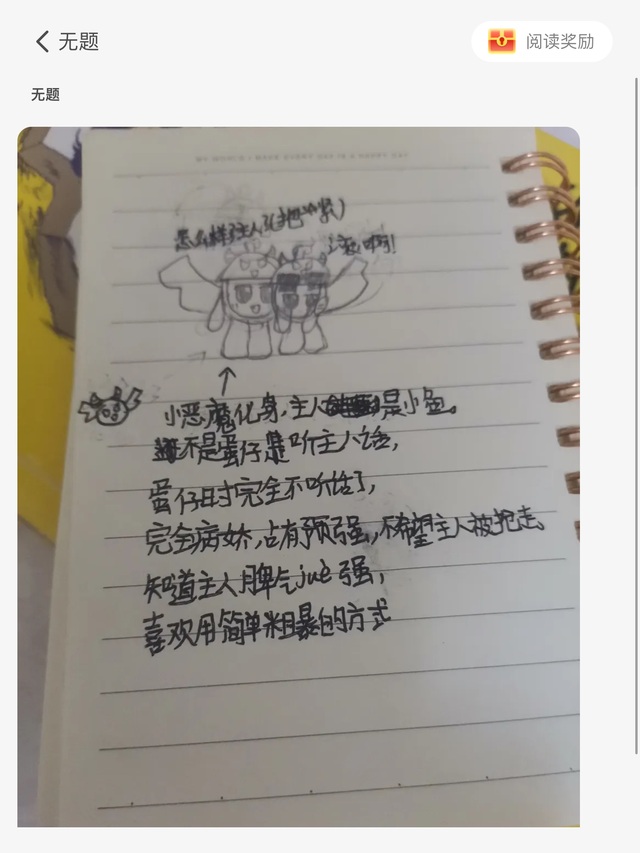 无题
阅读奖励
无题
MY WORLD
怎么样主人(抱紧)
滚啊!
小恶魔化身,主人是小鱼。
不是蛋仔是听主人话,
蛋仔时完全不听话了,
完全病娇,占有预强,不希望主人被抢走。
知道主人脾气jue强,
喜欢用简单粗暴的方式